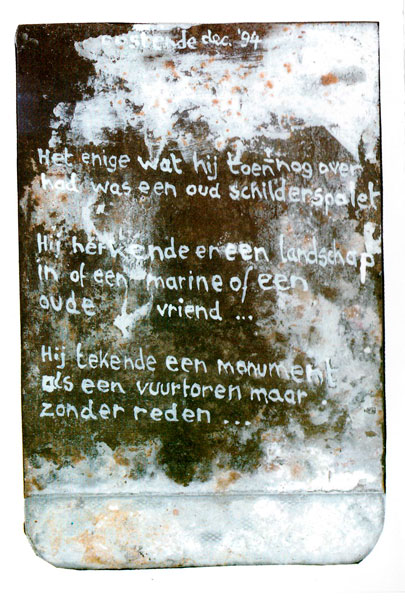 oostende dec. '94
Het enige wat hij toen nog over
had was een oud schilderspalet
Hij herkende er een landschap
in of een marine of een
oude vriend ...
Hij tekende een monument
als een vuurtoren maar
zonder reden ...